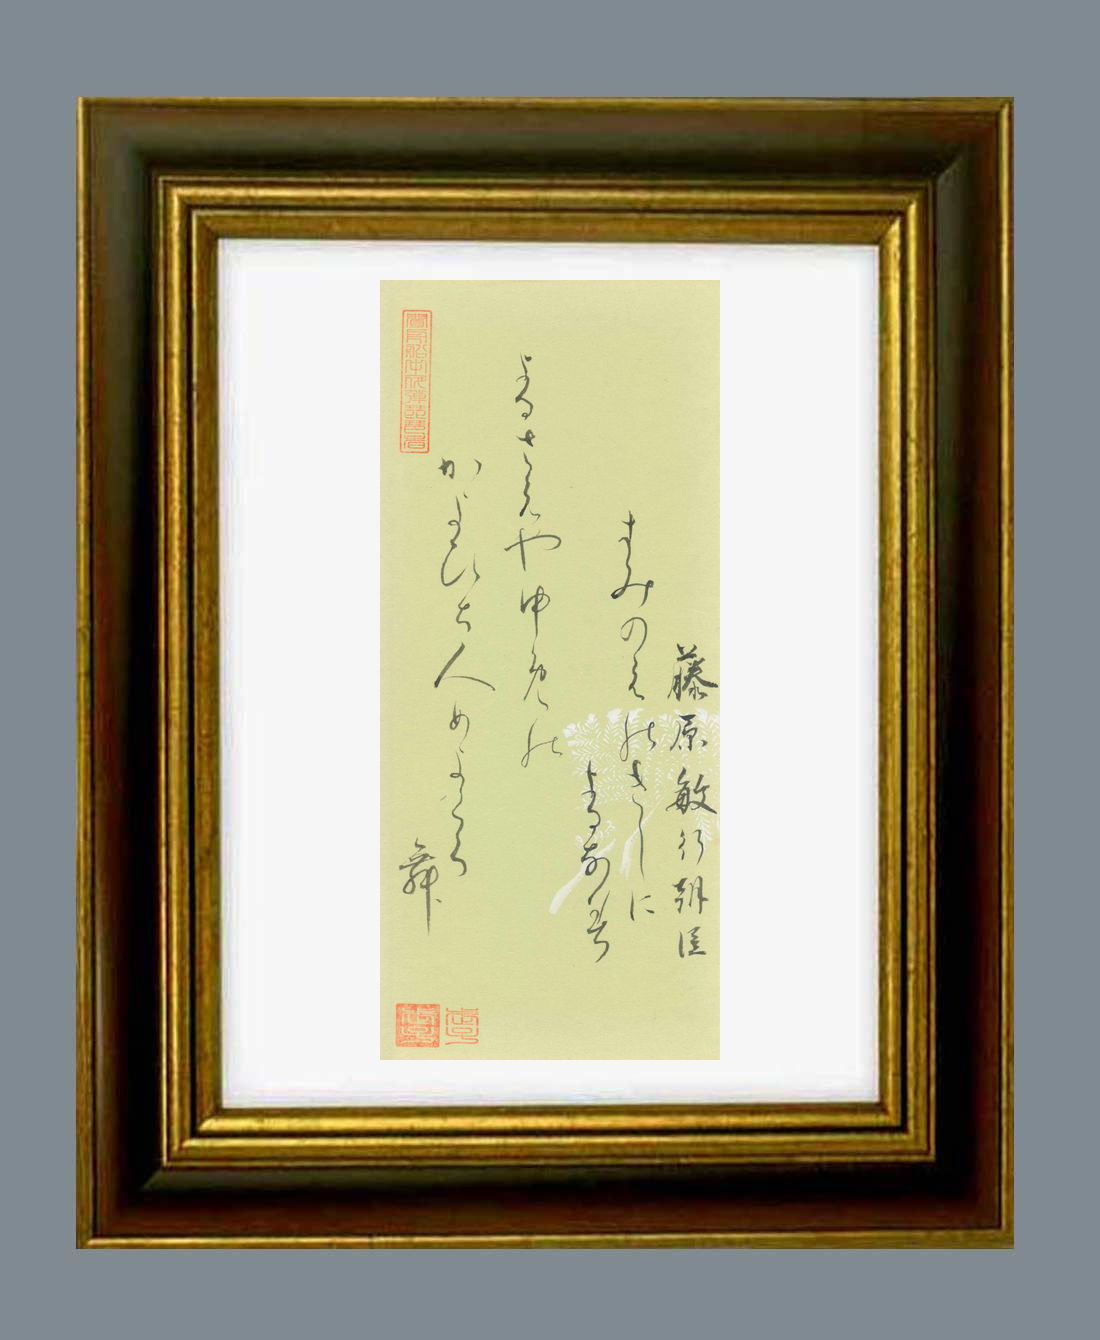 藤原敏行朝臣
すみのえ能きしに
よる那美
よるさへや由免能
かよひち人めよくら
舞